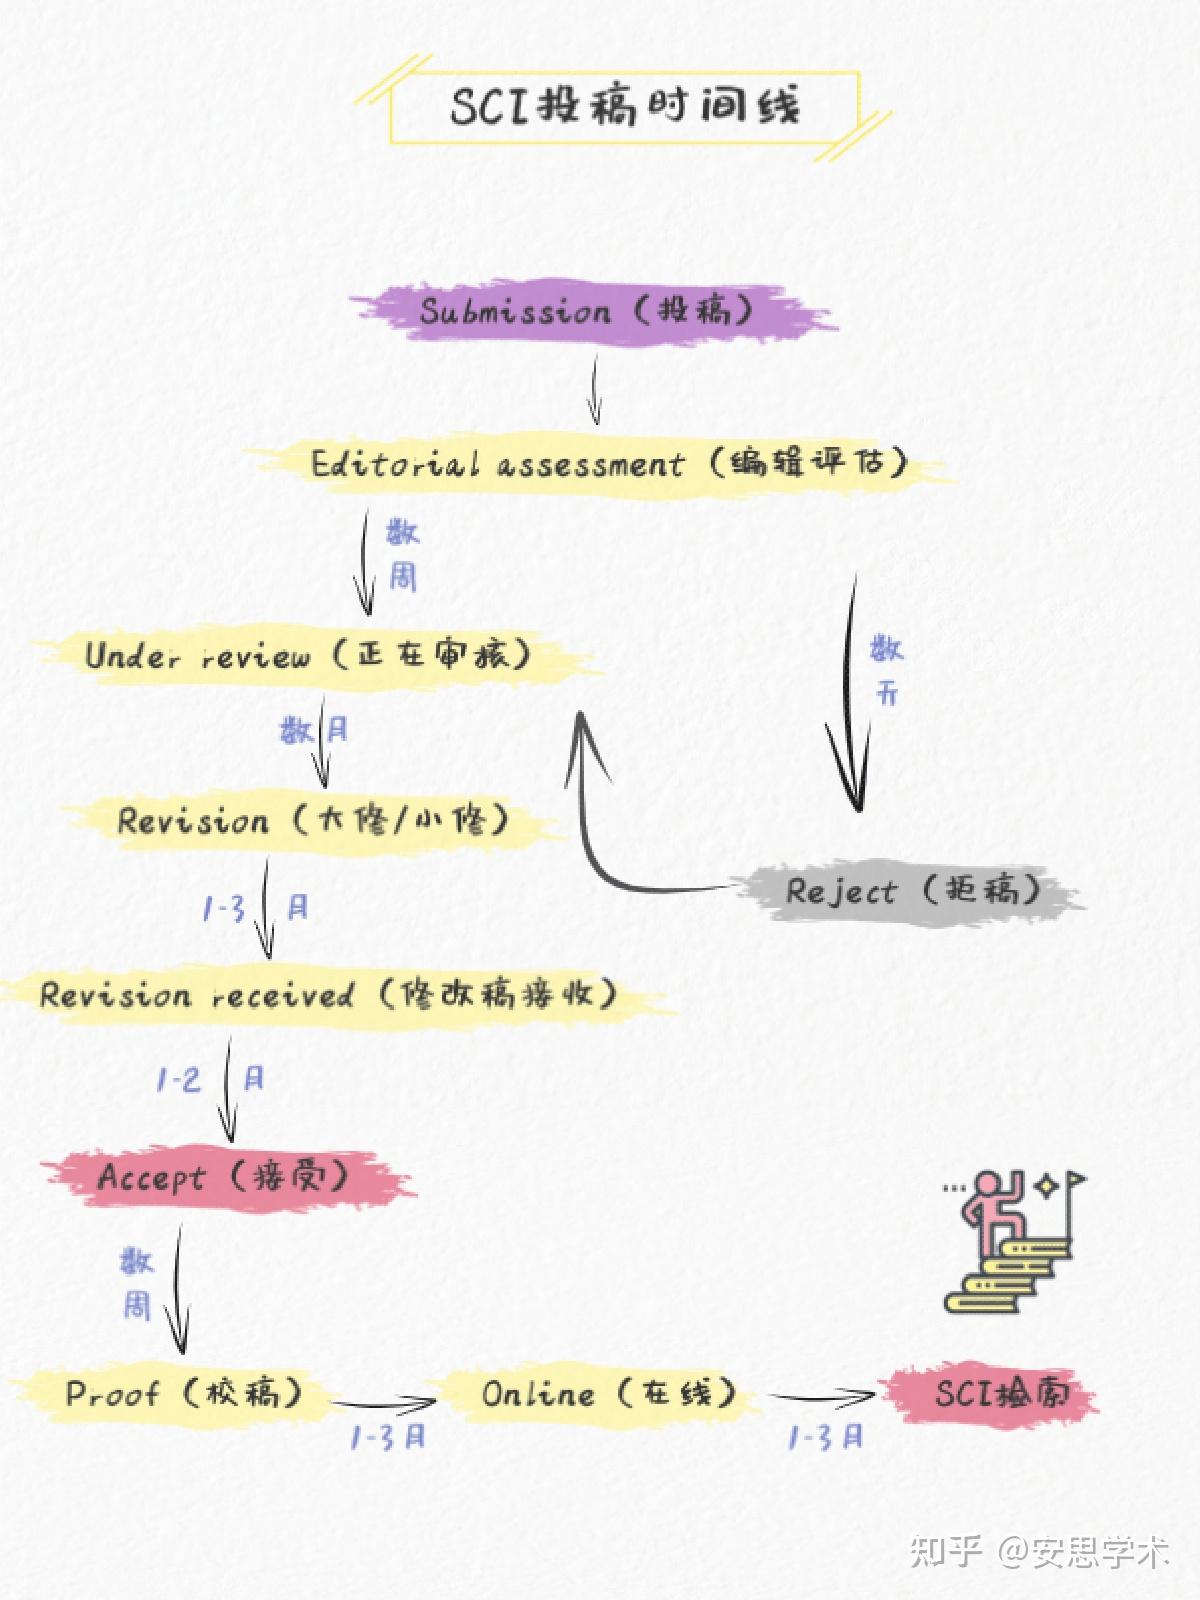 SCI投稿时间线
Submission（投稿）
Editorial assessment（编辑评估）
数
周
数
天
Under review（正在审核）
数月
Revision（大修/小修）
1-3 月
Reject（拒稿）
Revision received（修改稿接收）
1-2 月
Accept（接受）
数
周
Proof（校稿）
Online（在线）
SCI检索
1-3月
1-3月
知乎 @安思学术